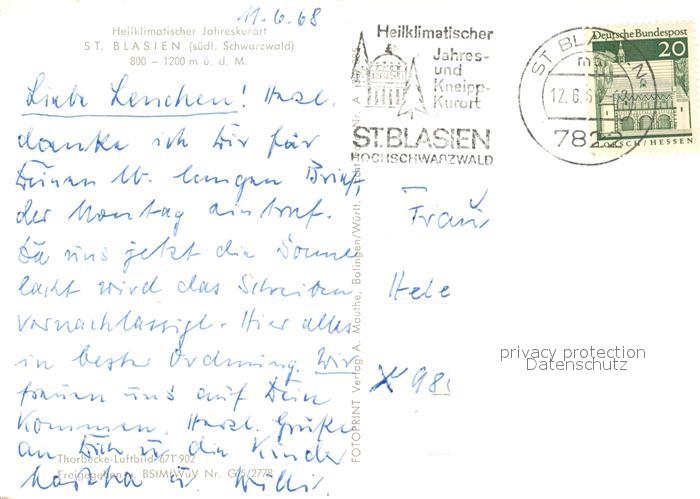 11.6.68
Heilklimatischer Jahreskurort
ST. BLASIEN (südl. Schwarzwald)
800 – 1200 m ü. d. M.
Liebe Lenchen! Herzl.
danke ich Dir für
Deinen lb. langen Brief,
der Montag eintraf.
Da uns jetzt die Sonne
lacht wird das Schreiben
vernachlässigt. Hier alles
in bester Ordnung. Wir
freuen uns auf Dein
Kommen. Herzl. Grüße
an Dich u. die Kinder
u. Willi.
Thorbecke-Luftbild 671 902
Freigegeben BStMfWuV Nr. G 5/2778
FOTOPRINT Verlag A. Mauthe, Balingen/Württ.
Heilklimatischer
Jahres-
und
Kneipp-
Kurort
ST.BLASIEN
HOCHSCHWARZWALD
ST BLASIEN
12.6.
782
Deutsche Bundespost
20
LORSCH/HESSEN
Frau
Hele
X 98
privacy protection
Datenschutz